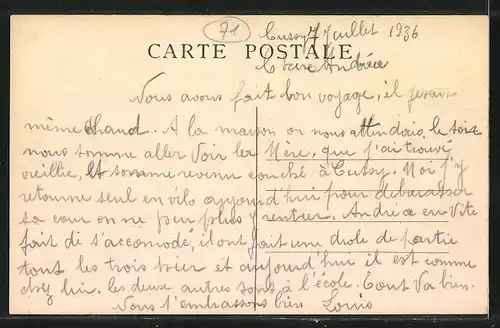 71
Cussy 7 Juillet 1936
CARTE POSTALE
Andrée
Nous avons fait bon voyage, il faisait
même chaud. A la maison on nous attendais, le soir
nous somme aller voir la Mère, que j'ai trouvé
vieillie, et somme revenu couché à Cussy. Moi j'y
retourne seul en vélo aujourd'hui pour débarasser
sa cour on ne peu plus y rentrer. Andrée en vite
fait di s'accomodé, il ont fait une drole de partie
tout les trois hier et aujourd'hui il est comme
chez lui. les deux autres sont à l'école. Tout va bien.
Nous t'embrassons bien Louis